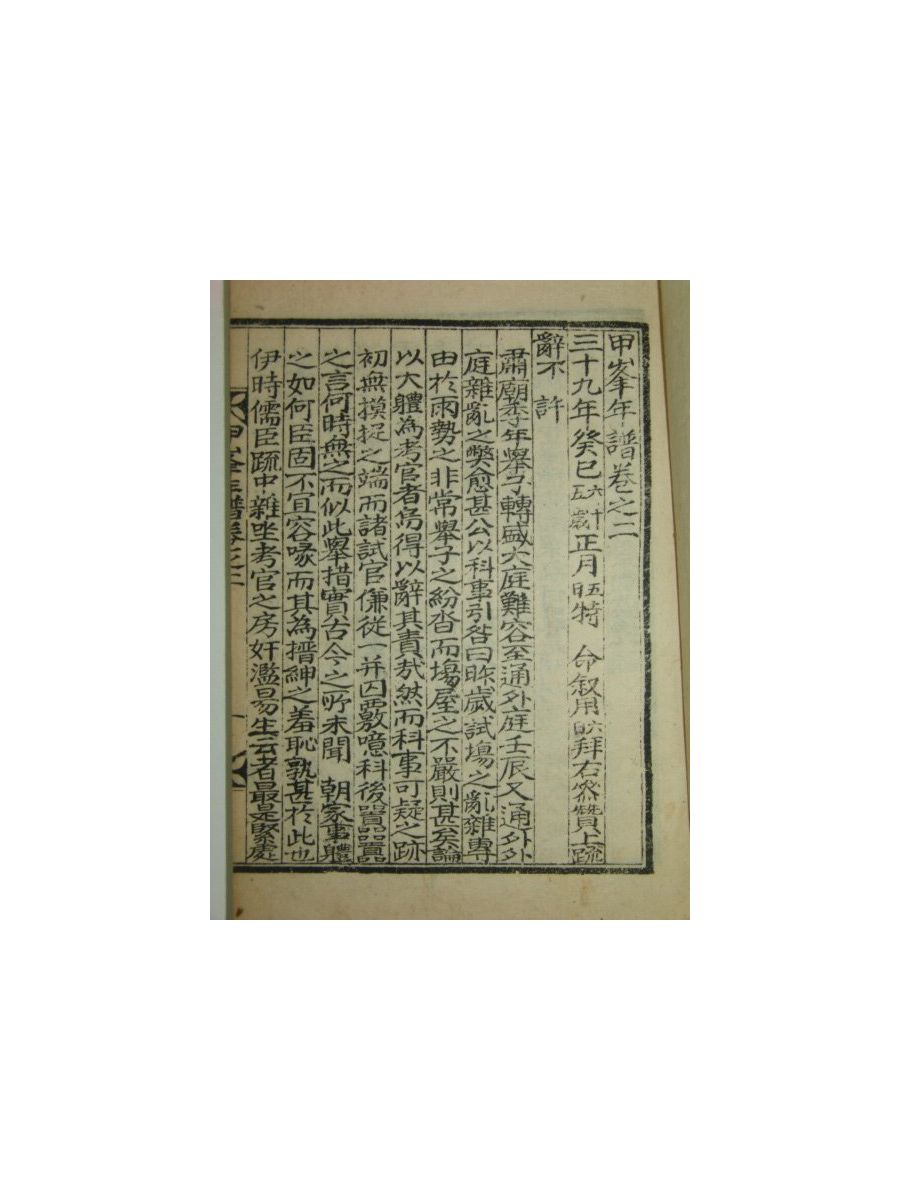 甲峯年譜卷之二
三十九年癸巳六十五歲正月五日特 命叙用六日拜右參贊上疏
辭不 許
肅廟季年舉子轉盛大庭難容至通外庭壬辰又通外外
庭雜亂之獘愈甚公以科事引咎曰昨歲試塲之亂雜專
由於雨勢之非常舉子之紛沓而塲屋之不嚴則甚矣論
以大體為考官者烏得以辭其責㦲然而科事可疑之跡
初無摸捉之端而諸試官傔從一并囚覈噫科後囂囂
之言何時無之而似此舉措實古今之所未聞 朝家事體
之如何臣固不宜容喙而其為搢紳之羞恥孰甚於此也
伊時儒臣疏中雜坐考官之房奸濫易生云者最是緊處
甲峯年譜卷之二 一